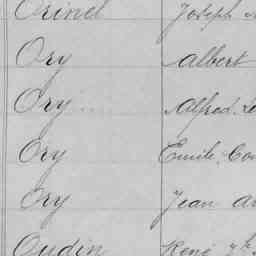 Orinel Joseph
Ory Albert
Ory Alfred. Le
Ory Emile. Con
Ory Jean
Oudin René